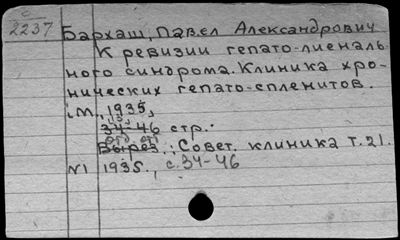 2237
Бархаш, Павел Александрович
К ревизии гепато-лиеналь-
ного синдрома. Клиника хро-
нических гепато-спленитов.
М., 1935,
34-46 стр.:
Вырез.: Совет. клиника т. 21.
N1 1935., с. 34-46